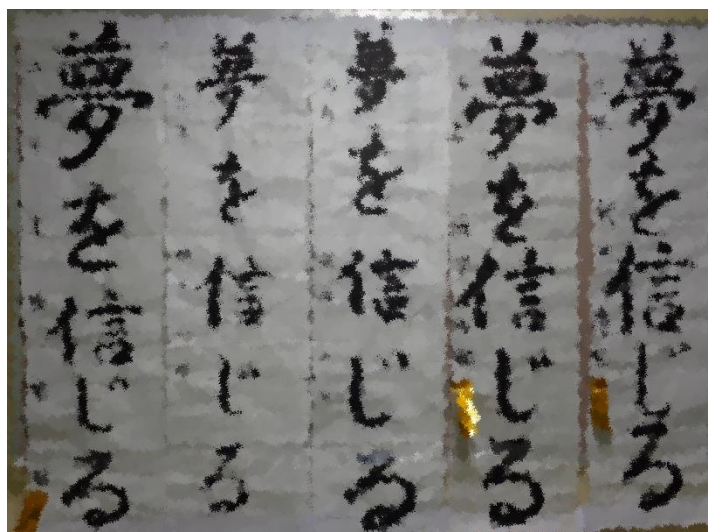 夢を信じる
夢を信じる
夢を信じる
夢を信じる
夢を信じる